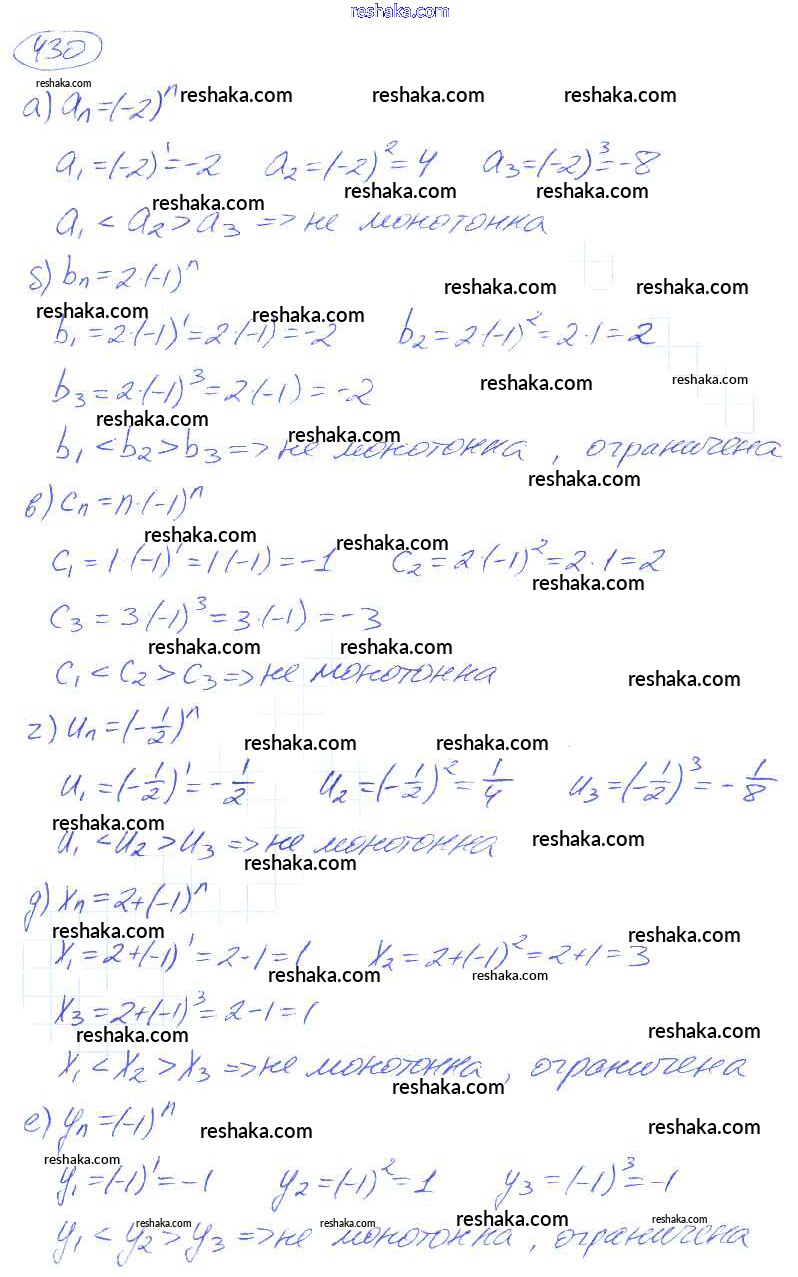 reshaka.com
430
reshaka.com
а) aₙ=(-2)ⁿ reshaka.com reshaka.com reshaka.com
a₁=(-2)¹=-2 a₂=(-2)²=4 a₃=(-2)³=-8
reshaka.com reshaka.com reshaka.com
a₁<a₂>a₃ => не монотонна
б) bₙ=2·(-1)ⁿ reshaka.com reshaka.com
reshaka.com reshaka.com
b₁=2·(-1)¹=2·(-1)=-2 b₂=2·(-1)²=2·1=2
b₃=2·(-1)³=2·(-1)=-2 reshaka.com reshaka.com
reshaka.com reshaka.com
b₁<b₂>b₃=> не монотонна, ограничена
reshaka.com
в) cₙ=n·(-1)ⁿ
reshaka.com reshaka.com
c₁=1·(-1)¹=1·(-1)=-1 c₂=2·(-1)²=2·1=2
reshaka.com
c₃=3·(-1)³=3·(-1)=-3
reshaka.com reshaka.com
c₁<c₂>c₃=> не монотонна reshaka.com
г) uₙ=(-1/2)ⁿ
reshaka.com reshaka.com
u₁=(-1/2)¹=-1/2 u₂=(-1/2)²=1/4 u₃=(-1/2)³=-1/8
reshaka.com reshaka.com
u₁<u₂>u₃=> не монотонна
reshaka.com
д) xₙ=2+(-1)ⁿ
reshaka.com reshaka.com
x₁=2+(-1)¹=2-1=1 x₂=2+(-1)²=2+1=3
reshaka.com reshaka.com
x₃=2+(-1)³=2-1=1
reshaka.com reshaka.com
x₁<x₂>x₃=> не монотонна, ограничена
reshaka.com
е) yₙ=(-1)ⁿ reshaka.com reshaka.com
reshaka.com
y₁=(-1)¹=-1 y₂=(-1)²=1 y₃=(-1)³=-1
reshaka.com reshaka.com reshaka.com reshaka.com
y₁<y₂>y₃=> не монотонна, ограничена